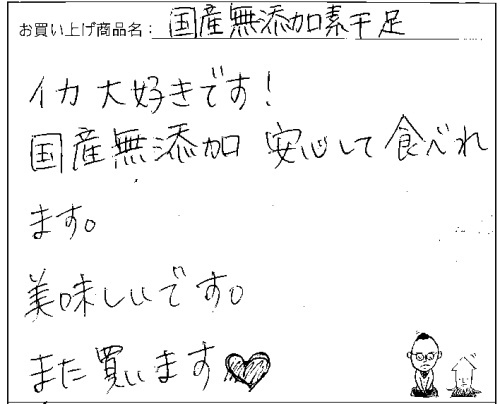 お買い上げ商品名：国産無添加素干足
イカ 大好きです！
国産無添加 安心して 食べれ
ます。
美味しいです。
また買います♥